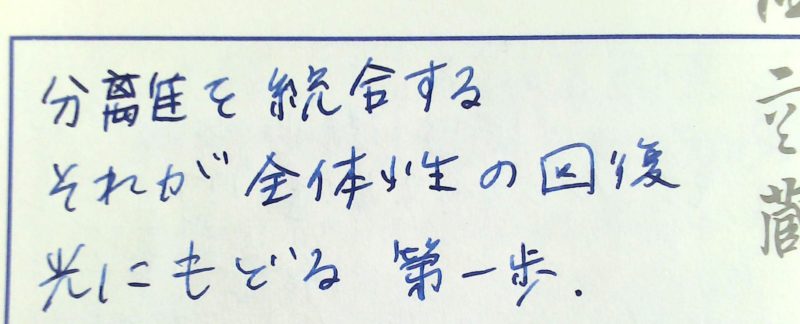 分離を統合する
それが全体性の回復
光にもどる 第一歩.
蔵